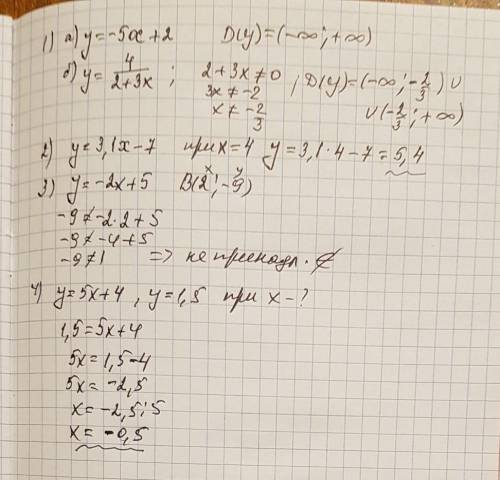 1) а) y=-5x+2 D(y)=(-∞;+∞)
б) y=4/(2+3x); 2+3x≠0, D(y)=(-∞;-2/3)∪
3x≠-2 ∪(-2/3;+∞)
x≠-2/3
2) y=3,1x-7 при x=4 y=3,1·4-7=5,4
3) y=-2x+5 B(2;-9)
x y
-9≠-2·2+5
-9≠-4+5
-9≠1 => не принадл. ∉
4) y=5x+4, y=1,5 при x-?
1,5=5x+4
5x=1,5-4
5x=-2,5
x=-2,5:5
x=-0,5